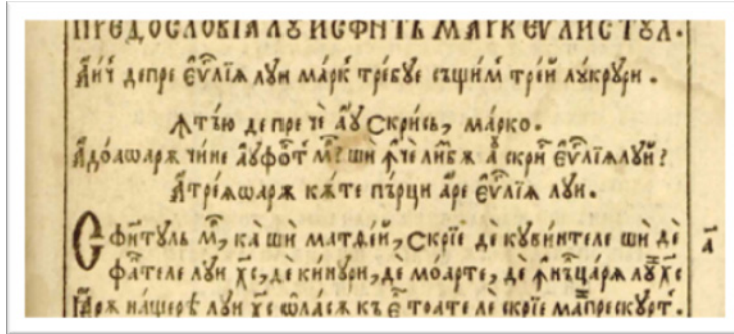 ПРЕДОСЛОВІА ЛꙊИ СФНТЬ МАРК ЕѴЛИСТꙊЛ.
А҆ич депре Є҆ѵ҃лїѧ лꙋи ма́рк тре́бꙋе същим тре́й лꙋкрꙋри .
Ꙟтѣю депре че а҆ꙋ Скри́сь, ма́рко.
А҆до́аѡарѫ чи́не а҆ꙋфо́ст м҃? ши ꙟче ли́бѫ а҆ скри Є҆ѵ҃лїѧлꙋй?
А҆тре́ѧѡарѫ кѫте пъ́рци а҆ре Є҆ѵ҃лїѧ лꙋи .
Сфи́тꙋль м҃, ка̀ шѝ матѳе́й, Скрїе дѐ кꙋви́нтеле шѝ дѐ а҃
фа́птеле лꙋи х҃с, де ки́нꙋри, дѐ мо́арте, дѐ ꙟнъца́рѧ лꙋ х҃с
на́щерѣ лꙋи х҃с ѡ҆ла́сѫ къ тоате лѐ скрїе прескꙋрт.